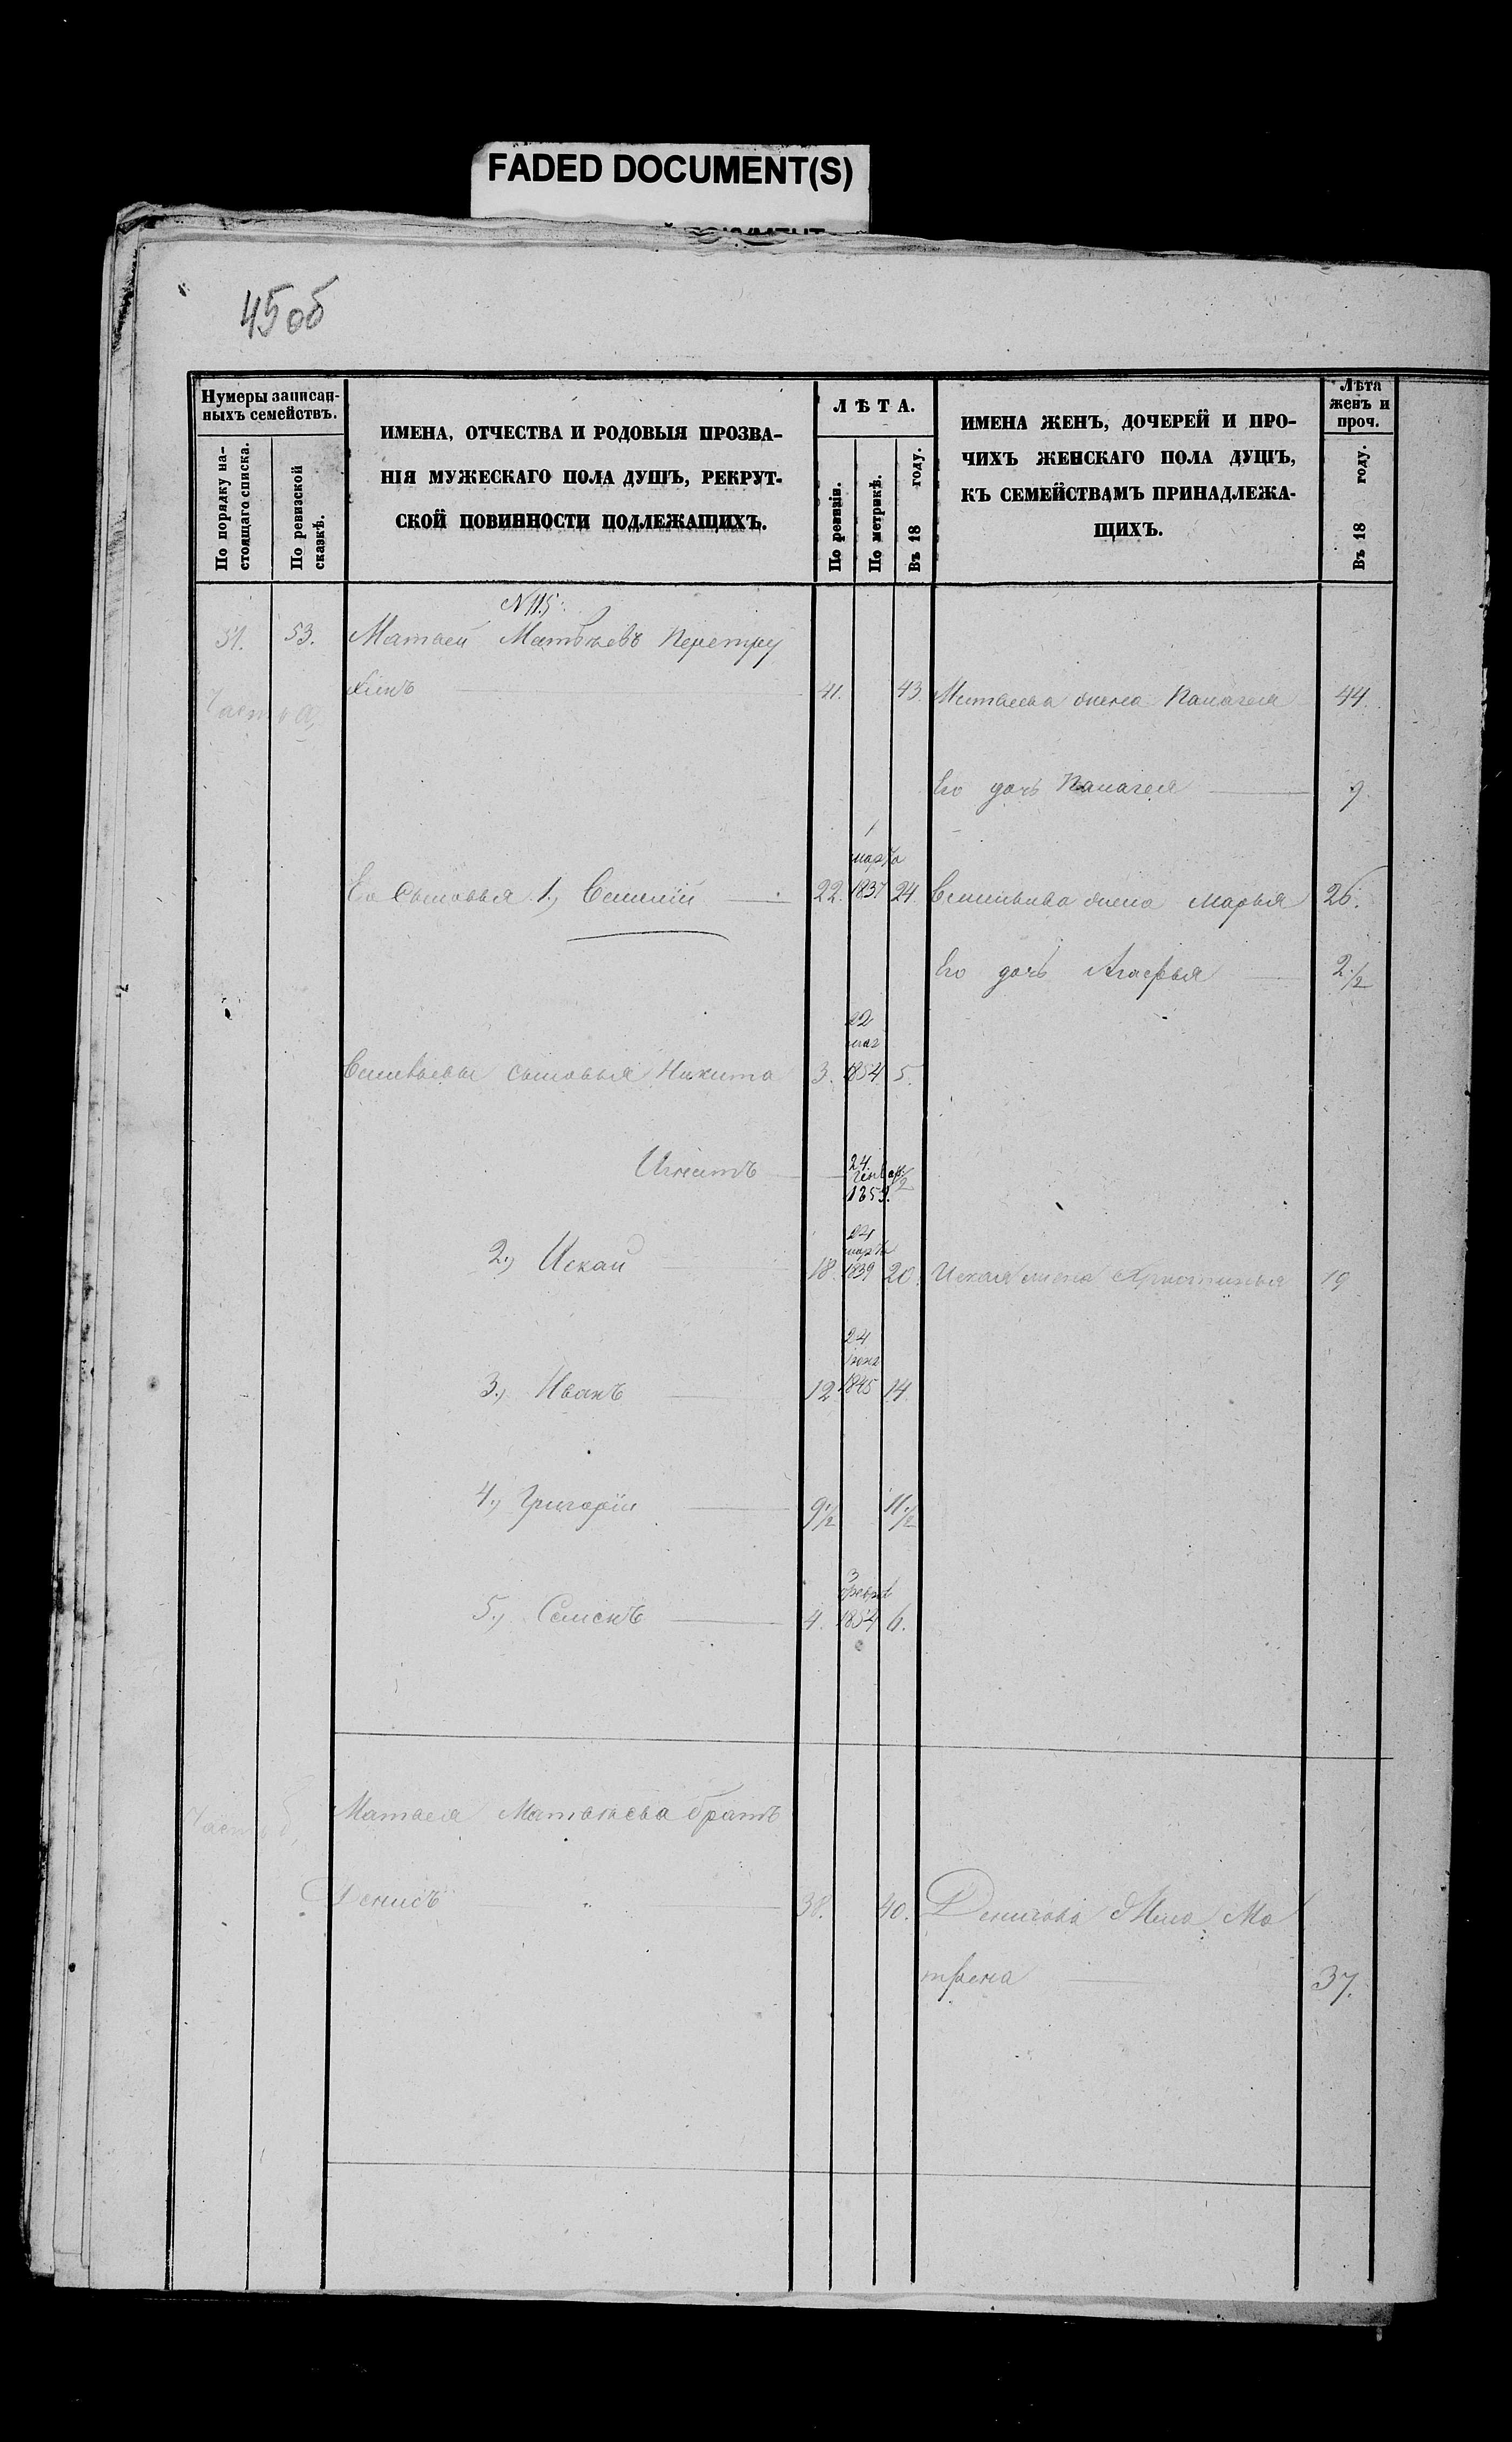 FADED DOCUMENT(S)
45 об
Нумеры записан-
ныхъ семействъ.
По порядку на-
стоящаго списка.
По ревизской
сказкѣ.
ИМЕНА, ОТЧЕСТВА И РОДОВЫЯ ПРОЗВА-
НІЯ МУЖЕСКАГО ПОЛА ДУШЪ, РЕКРУТ-
СКОЙ ПОВИННОСТИ ПОДЛЕЖАЩИХЪ.
ЛѢТА.
По ревизіи.
По метрикѣ.
Въ 18 году.
ИМЕНА ЖЕНЪ, ДОЧЕРЕЙ И ПРО-
ЧИХЪ ЖЕНСКАГО ПОЛА ДУШЪ,
КЪ СЕМЕЙСТВАМЪ ПРИНАДЛЕЖА-
ЩИХЪ.
Лѣта
женъ и
проч.
Въ 18 году.
N 115.
51. 53. Матвей Матвѣевъ Перетру
хинъ 41. 43. Матвеева жена Палагея 44.
Часть а,
Его дочь Палагея 9.
1
марта
Его Сыновья 1., 22. 1837 24. жена Марья 26.
Его дочь Агафья 2 1/2
22
мая
сыновья Никита 3. 1854 5.
24.
Генвар.
Игнатъ 1859. 1/2
24
марта
2., Искай 18. 1839 20. Иская жена Христинья 19
24
3., Иванъ 12 1845 14
4., Григорій 9 1/2 11 1/2
3
феврал
5., Семенъ 4. 1854 6.
Матвея Матвѣева братъ
Часть б,
Денисъ 38. 40. Денисова Жена Ма
трена 37.